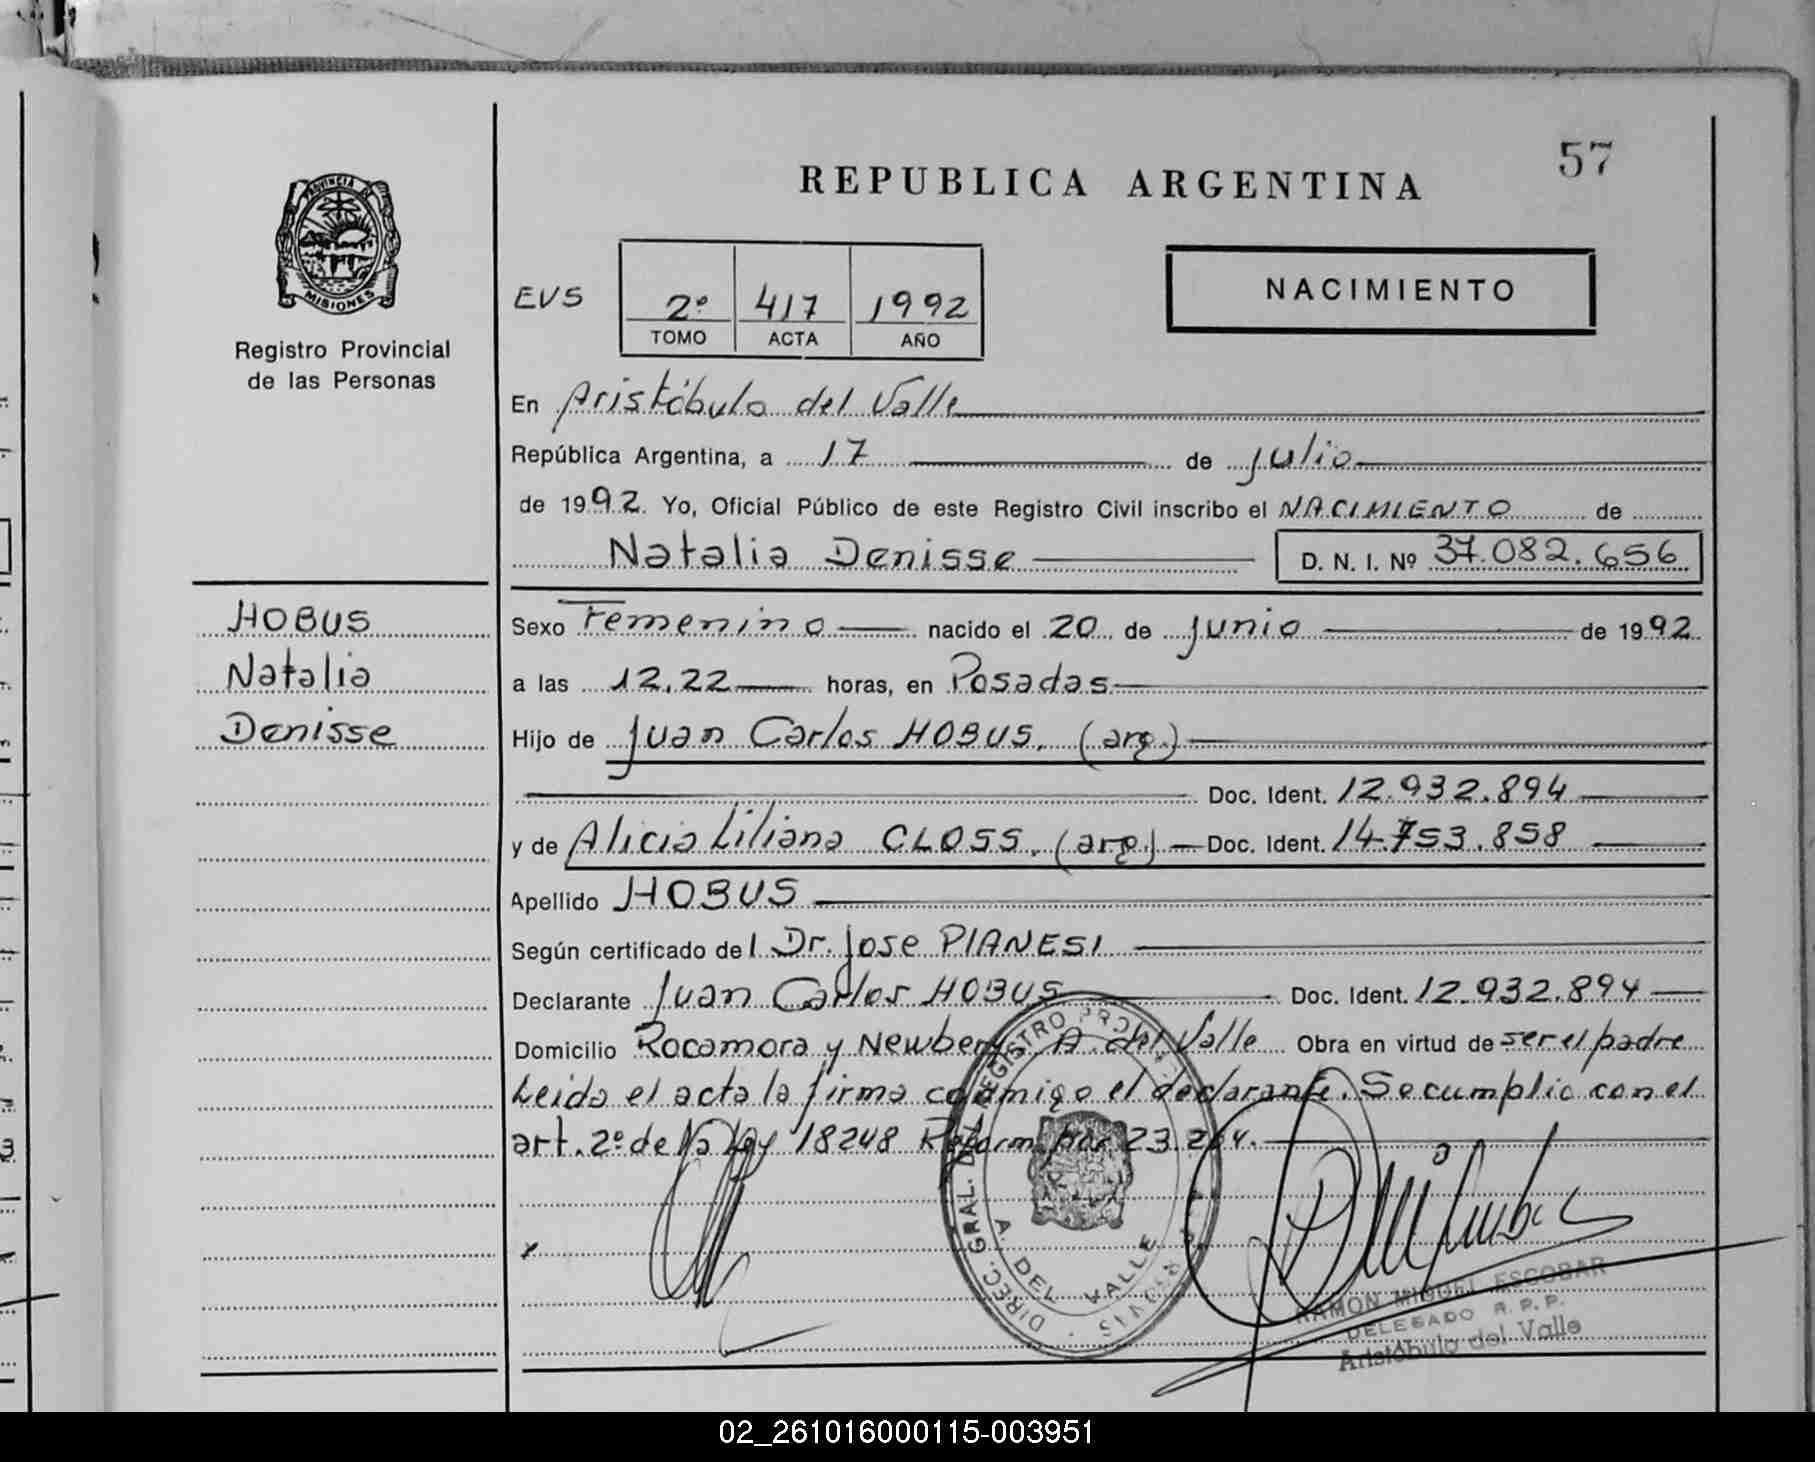 57
REPUBLICA ARGENTINA
PROVINCIA DE
MISIONES
Registro Provincial
de las Personas
EVS
2º 417 1992
TOMO ACTA AÑO
NACIMIENTO
En Aristóbulo del Valle
República Argentina, a 17 de julio
de 1992. Yo, Oficial Público de este Registro Civil inscribo el NACIMIENTO de
Natalia Denisse D. N. I. Nº 37.082.656
HOBUS
Natalia
Denisse
Sexo Femenino nacido el 20 de junio de 1992
a las 12.22 horas, en Posadas
Hijo de Juan Carlos HOBUS. (arg.)
Doc. Ident. 12.932.894
y de Alicia Liliana CLOSS. (arg.) Doc. Ident. 14.753.858
Apellido HOBUS
Según certificado del Dr. Jose PIANESI
Declarante Juan Carlos HOBUS Doc. Ident. 12.932.894
Domicilio Rocamora y Newbery A. del Valle Obra en virtud de ser el padre
Leida el acta la firma conmigo el declarante. Se cumplio con el
art. 2º de la Ley 18248 Reform. por 23.264.
x
DIREC. GRAL. DEL REGISTRO PROV.
A. DEL VALLE
MISIONES
RAMON MIGUEL ESCOBAR
DELEGADO R.P.P.
Aristóbulo del Valle
02_261016000115-003951